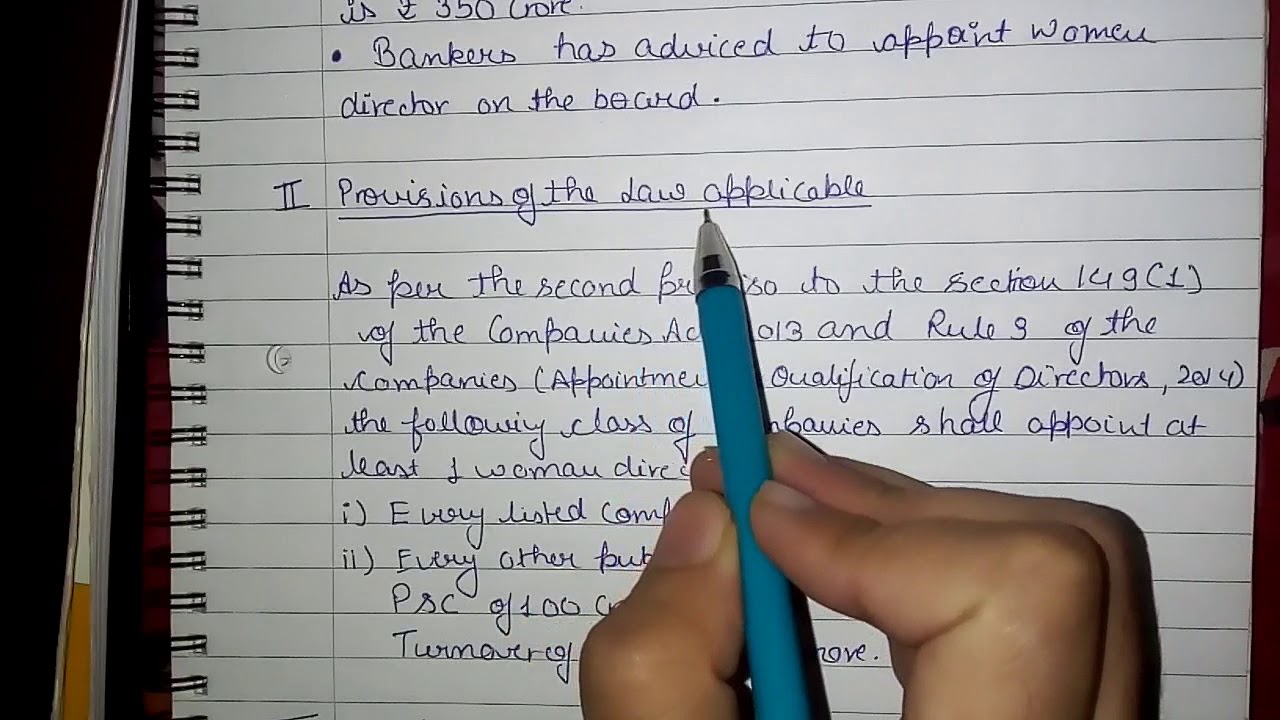 is ₹ 350 Crore.
• Bankers has adviced to appoint women
director on the board.
II Provisions of the Law applicable
As per the second iso to the section 149(1)
of the Companies Ac 013 and Rule 3 of the
Companies (Appointme Qualification of Directors, 2014)
the followig class of panies shall appoint at
least 1 woman direc
i) Every listed comp
ii) Every other pub
PSC of 100 Cr
Turnover of rore.